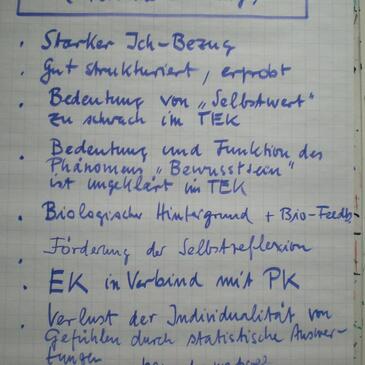 • Starker Ich-Bezug
• Gut strukturiert, erprobt
• Bedeutung von „Selbstwert"
zu schwach im TEK
• Bedeutung und Funktion des
Phänomens „Bewusstsein"
ist ungeklärt im TEK
• Biologischer Hintergrund + Bio-Feedb
• Förderung der Selbstreflexion
• EK in Verbind mit PK
• Verlust der Individualität von
Gefühlen durch statistische Auswer-
tungen